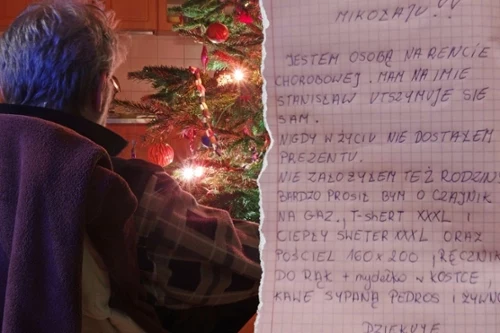 MIKOŁAJU !!
JESTEM OSOBĄ NA RENCIE
CHOROBOWEJ. MAM NA IMIE
STANISŁAW UTSZYMUJE SIE
SAM.
NIGDY W ŻYCIU NIE DOSTAŁEM
PREZENTU.
NIE ZAŁOŻYŁEM TEŻ RODZINY
BARDZO PROSIŁ BYM O CZAJNIK
NA GAZ, T-SHERT XXXL I
CIEPŁY SWETER XXXL ORAZ
POŚCIEL 160X200, RĘCZNIK
DO RĄK + mydełko w KOSTCE,
KAWE SYPANĄ PEDROS I ŻYWNO
DZIĘKUJE